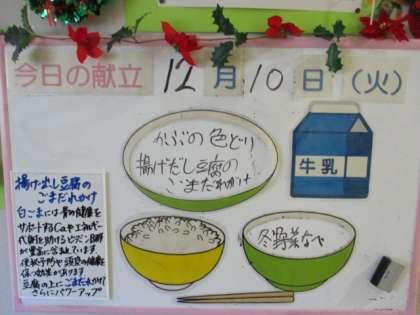 今日の献立 12月10日（火）
かぶの色どり
揚げだし豆腐の
ごまだれかけ
牛乳
冬野菜なべ
揚げ出し豆腐の
ごまだれかけ
白ごまには骨の健康を
サポートするCaやエネルギー
代謝を助けるビタミンB群
が豊富に含まれています
便秘予防や頭皮の健康
保つ効果があります
豆腐の上にごまだれかけて
さらにパワーアップ